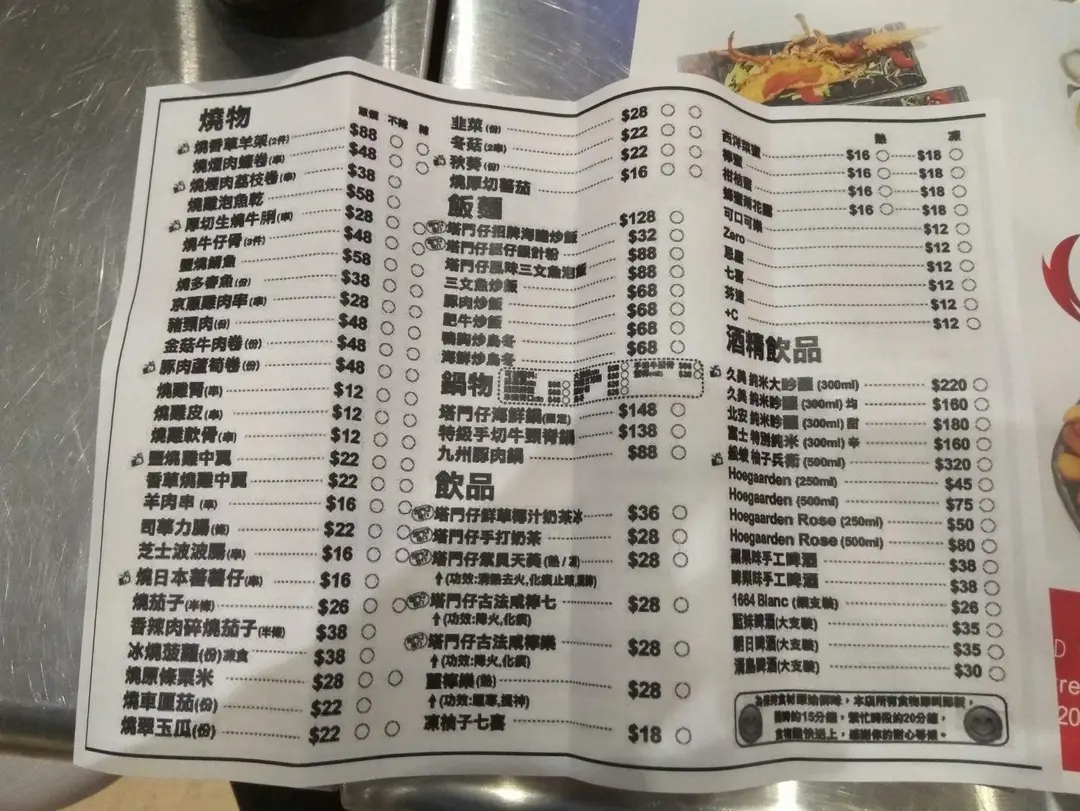 燒物
單價 不辣 辣
燒香草羊架(2件) $88
燒煙肉蠔卷(串) $48
燒煙肉荔枝卷(串) $38
燒雞泡魚乾 $58
厚切生燒牛脷(串) $28
燒牛仔骨(3件) $48
鹽燒鯖魚 $58
燒多春魚(份) $38
京蔥雞肉串(串) $28
豬頸肉(份) $48
金菇牛肉卷(份) $48
豚肉蘆筍卷(份) $48
燒雞腎(串) $12
燒雞皮(串) $12
燒雞軟骨(串) $12
鹽燒雞中翼 $22
香草燒雞中翼 $22
羊肉串(串) $16
司華力腸(條) $22
芝士波波腸(串) $16
燒日本蕃薯仔(串) $16
燒茄子(半條) $26
香辣肉碎燒茄子(半條) $38
冰燒菠蘿(份)凍食 $38
燒原條粟米 $28
燒車厘茄(份) $22
燒翠玉瓜(份) $22
韭菜(份) $28
冬菇(2串) $22
秋葵(份) $22
燒厚切蕃茄 $16
飯麵
塔門仔招牌海膽炒飯 $128
塔門仔 銀針粉 $32
塔門仔風味三文魚泡飯 $88
三文魚炒飯 $88
豚肉炒飯 $68
肥牛炒飯 $68
鴨胸炒烏冬 $68
海鮮炒烏冬 $68
鍋物
塔門仔海鮮鍋(限定) $148
特級手切牛頸脊鍋 $138
九州豚肉鍋 $88
飲品
塔門仔鮮草椰汁奶茶冰 $36
塔門仔手打奶茶 $28
塔門仔紫貝天美(熱/凍) $28
↑(功效:清熱去火,化痰止咳
塔門仔古法咸檸七 $28
↑(功效:降火,化痰)
塔門仔古法咸檸樂 $28
↑(功效:降火,化痰)
薑檸樂(熱) $28
↑(功效:驅寒,提神)
凍柚子七喜 $18
熱 凍
西洋菜蜜 $16 $18
檸蜜 $16 $18
柑桔蜜 $16 $18
蜂蜜 花露 $16 $18
可口可樂 $12
Zero $12
忌廉 $12
七喜 $12
芬達 $12
+C $12
酒精飲品
久美 純米大吟釀 (300ml) $220
久美 純米吟釀 (300ml) 均 $160
北安 純米吟釀 (300ml) 甜 $180
富士 特別純米 (300ml) 辛 $160
柚子兵衛 (500ml) $320
Hoegaarden (250ml) $45
Hoegaarden (500ml) $75
Hoegaarden Rose (250ml) $50
Hoegaarden Rose (500ml) $80
蘋果味手工啤酒 $38
啤梨味手工啤酒 $38
1664 Blanc (樽支裝) $26
藍妹啤酒(大支裝) $35
朝日啤酒(大支裝) $35
青島啤酒(大支裝) $30
為保持食材原始味，本店所有食物即叫即製，
需時約15分鐘，繁忙時段約20分鐘，
食物盡快送上，感謝你的耐心等候。